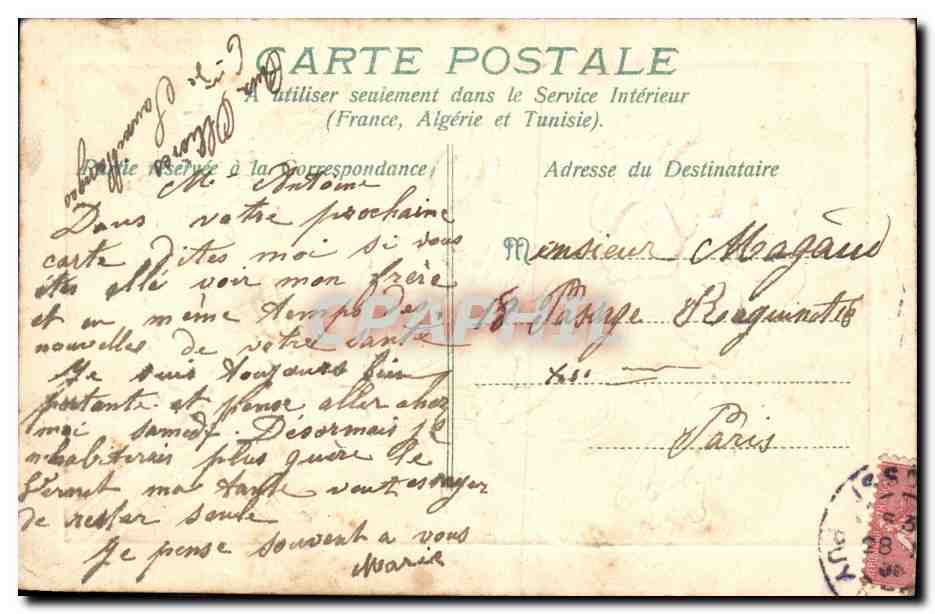 CARTE POSTALE
A utiliser seulement dans le Service Intérieur
(France, Algérie et Tunisie).
Partie réservée à la Correspondance
Adresse du Destinataire
Mr Antoine
Dans votre prochaine
carte dites moi si vous
êtes allé voir mon frère
et en même temps de
nouvelles de votre santé
Je suis toujours bien
portante et pense aller chez
moi samedi. Desormais je
n'habiterai plus guère le
Vernet ma tante veut essayer
de rester seule
Je pense souvent a vous
Marie
Monsieur Magaud
8 Passage Raguinot
Paris
CPAPHIL
PUY
28